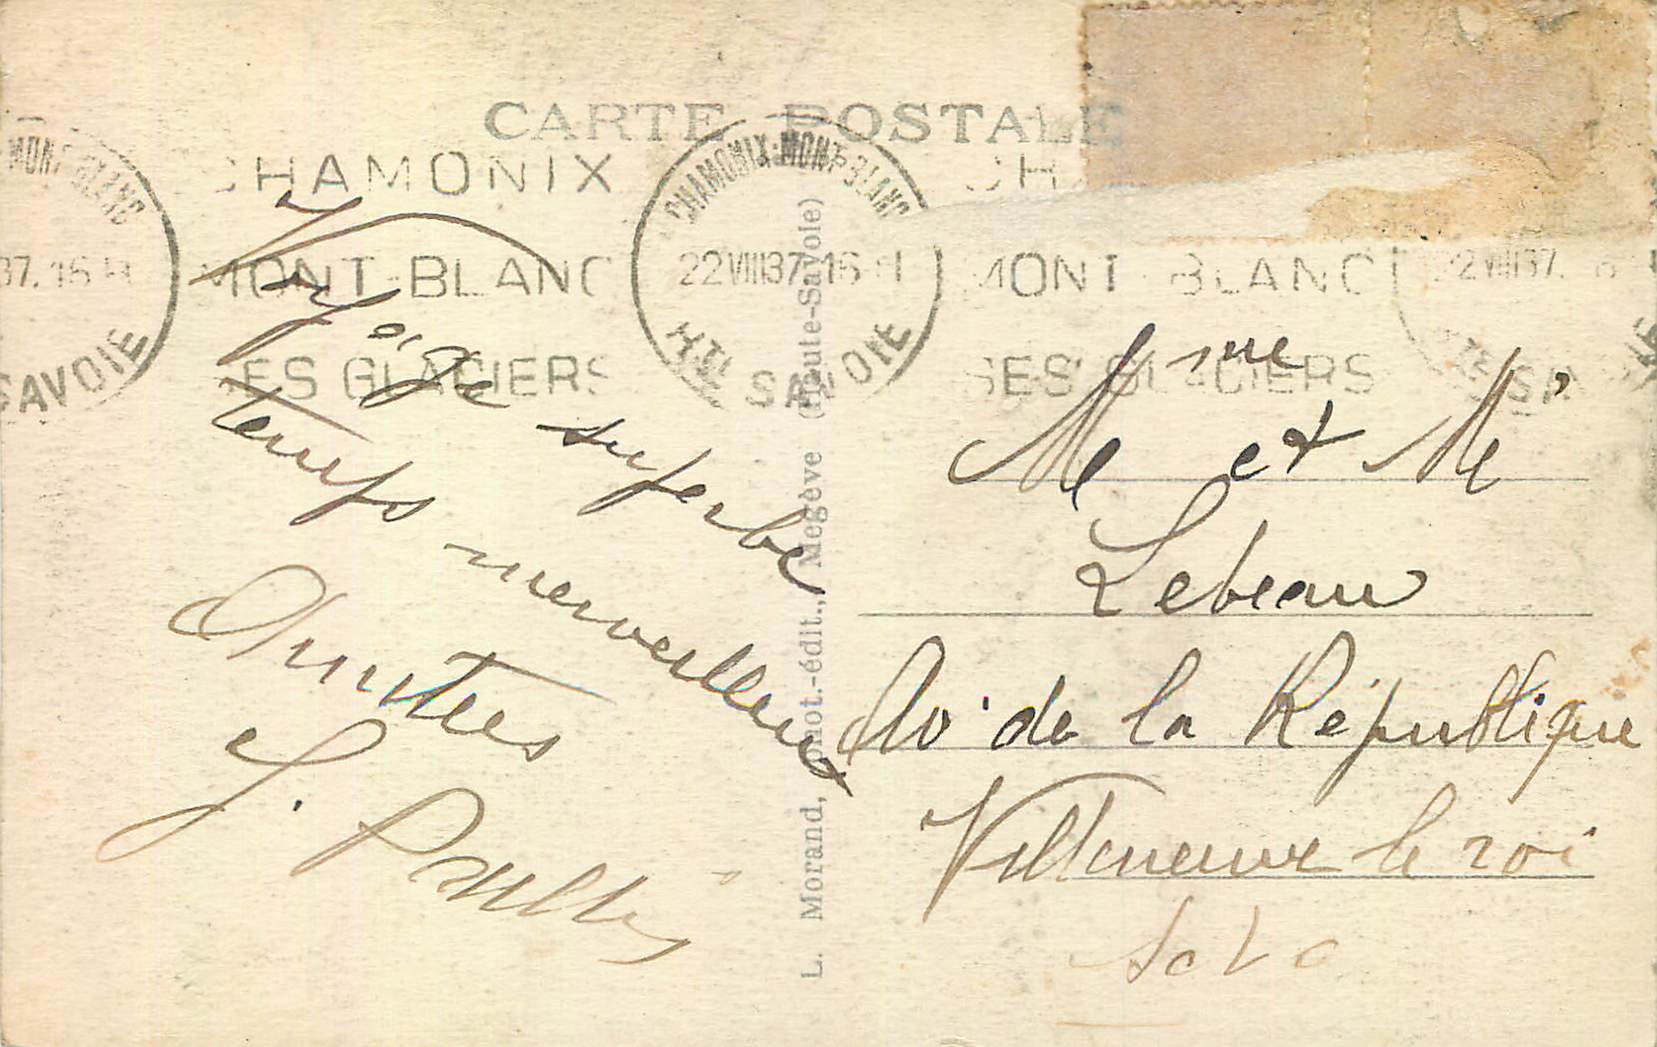 CARTE POSTALE
MONT-BLANC
37.16 H
SAVOIE
CHAMONIX
MONT-BLANC
SES GLACIERS
CHAMONIX-MONT-BLANC
22 VIII 37. 16 H
HTE SAVOIE
CH
MONT BLANC
SES GLACIERS
22 VIII 37.
HTE SA
Voyage superbe
temps merveilleux
Amitiés
L. Morand, phot.-édit., Megève (Haute-Savoie)
Mme et Mr
Lebeau
Av. de la République
Villeneuve le roi
S et O